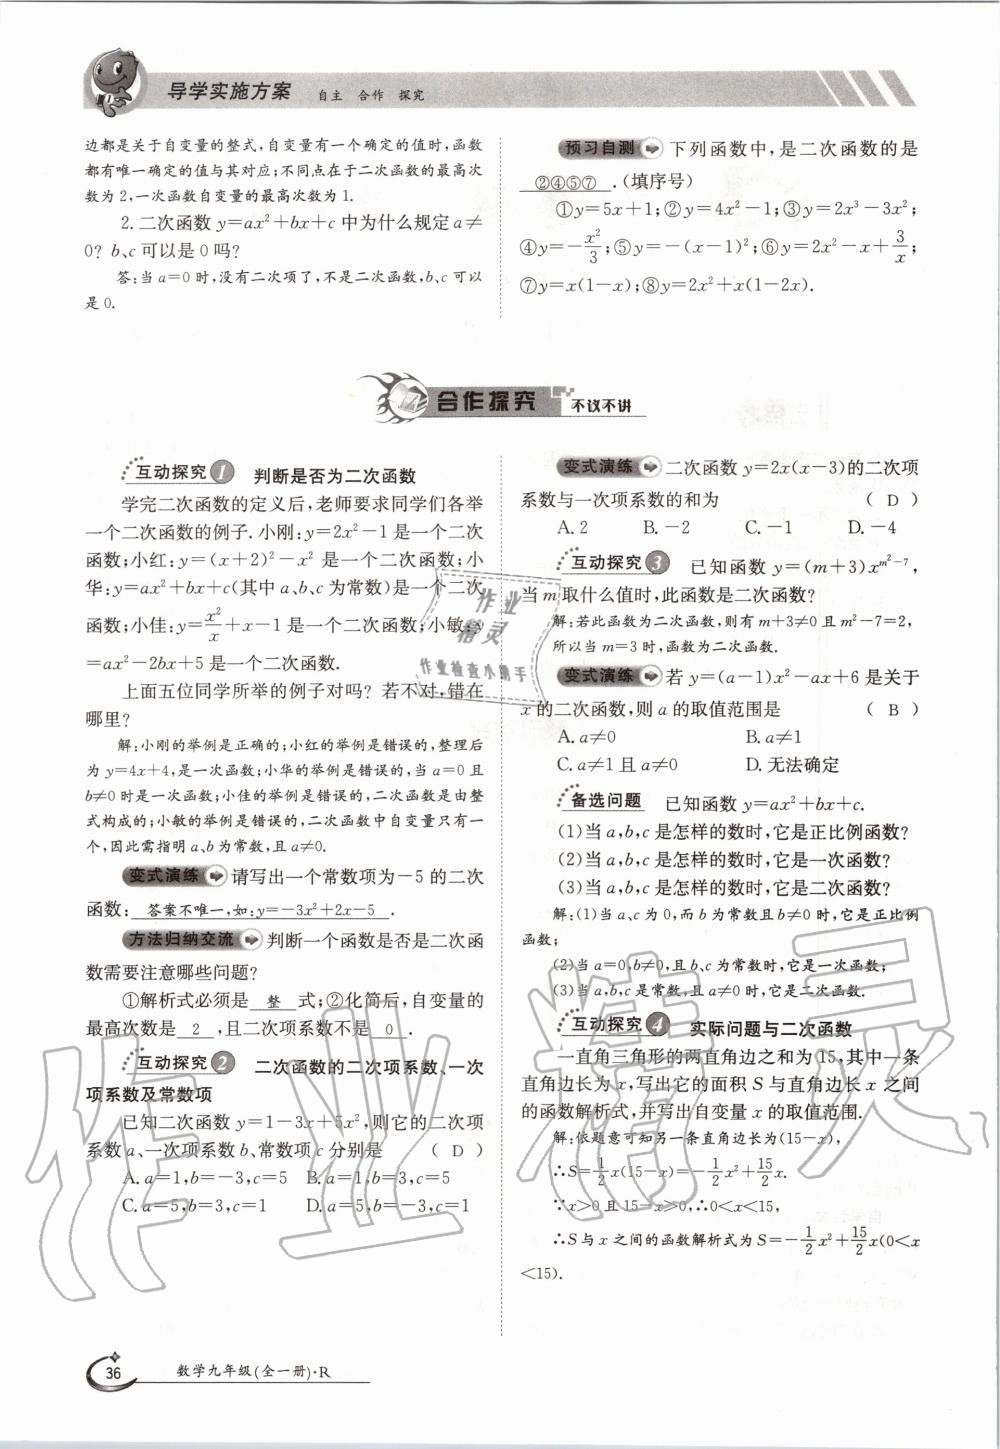 导学实施方案 自主 合作 探究
边都是关于自变量的整式,自变量有一个确定的值时,函数
都有唯一确定的值与其对应;不同点在于二次函数的最高次
数为2,一次函数自变量的最高次数为1.
2.二次函数y=ax²+bx+c中为什么规定a≠
0?b、c可以是0吗?
答:当a=0时,没有二次项了,不是二次函数,b、c可以
是0.
预习自测 下列函数中,是二次函数的是
②④⑤⑦ .(填序号)
①y=5x+1;②y=4x²-1;③y=2x³-3x²;
④y=-x²/3;⑤y=-(x-1)²;⑥y=2x²-x+3/x;
⑦y=x(1-x);⑧y=2x²+x(1-2x).
合作探究 不议不讲
互动探究1 判断是否为二次函数
学完二次函数的定义后,老师要求同学们各举
一个二次函数的例子.小刚:y=2x²-1是一个二次
函数;小红:y=(x+2)²-x²是一个二次函数;小
华:y=ax²+bx+c(其中a、b、c为常数)是一个二次
函数;小佳:y=x²/x+x-1是一个二次函数;小敏:y
=ax²-2bx+5是一个二次函数.
上面五位同学所举的例子对吗?若不对,错在
哪里?
解:小刚的举例是正确的;小红的举例是错误的,整理后
为y=4x+4,是一次函数;小华的举例是错误的,当a=0且
b≠0时是一次函数;小佳的举例是错误的,二次函数是由整
式构成的;小敏的举例是错误的,二次函数中自变量只有一
个,因此需指明a、b为常数,且a≠0.
变式演练 请写出一个常数项为-5的二次
函数: 答案不唯一,如:y=-3x²+2x-5 .
方法归纳交流 判断一个函数是否是二次函
数需要注意哪些问题?
①解析式必须是 整 式;②化简后,自变量的
最高次数是 2 ,且二次项系数不是 0 .
互动探究2 二次函数的二次项系数、一次
项系数及常数项
已知二次函数y=1-3x+5x²,则它的二次项
系数a、一次项系数b、常数项c分别是 ( D )
A.a=1,b=-3,c=5 B.a=1,b=3,c=5
C.a=5,b=3,c=1 D.a=5,b=-3,c=1
变式演练 二次函数y=2x(x-3)的二次项
系数与一次项系数的和为 ( D )
A.2 B.-2 C.-1 D.-4
互动探究3 已知函数y=(m+3)x^(m²-7),
当m取什么值时,此函数是二次函数?
解:若此函数为二次函数,则有m+3≠0且m²-7=2,
所以当m=3时,函数为二次函数.
变式演练 若y=(a-1)x²-ax+6是关于
x的二次函数,则a的取值范围是 ( B )
A.a≠0 B.a≠1
C.a≠1且a≠0 D.无法确定
备选问题 已知函数y=ax²+bx+c.
(1)当a,b,c是怎样的数时,它是正比例函数?
(2)当a,b,c是怎样的数时,它是一次函数?
(3)当a,b,c是怎样的数时,它是二次函数?
解:(1)当a、c为0,而b为常数且b≠0时,它是正比例
函数;
(2)当a=0,b≠0,且b、c为常数时,它是一次函数;
(3)当a、b,c是常数,且a≠0时,它是二次函数.
互动探究4 实际问题与二次函数
一直角三角形的两直角边之和为15,其中一条
直角边长为x,写出它的面积S与直角边长x之间
的函数解析式,并写出自变量x的取值范围.
解:依题意可知另一条直角边长为(15-x),
∴S=1/2x(15-x)=-1/2x²+15/2x.
∵x>0且15-x>0,∴0<x<15,
∴S与x之间的函数解析式为S=-1/2x²+15/2x(0<x
<15).
作业
精灵
作业检查小帮手
作业精灵
36 数学九年级(全一册)·R